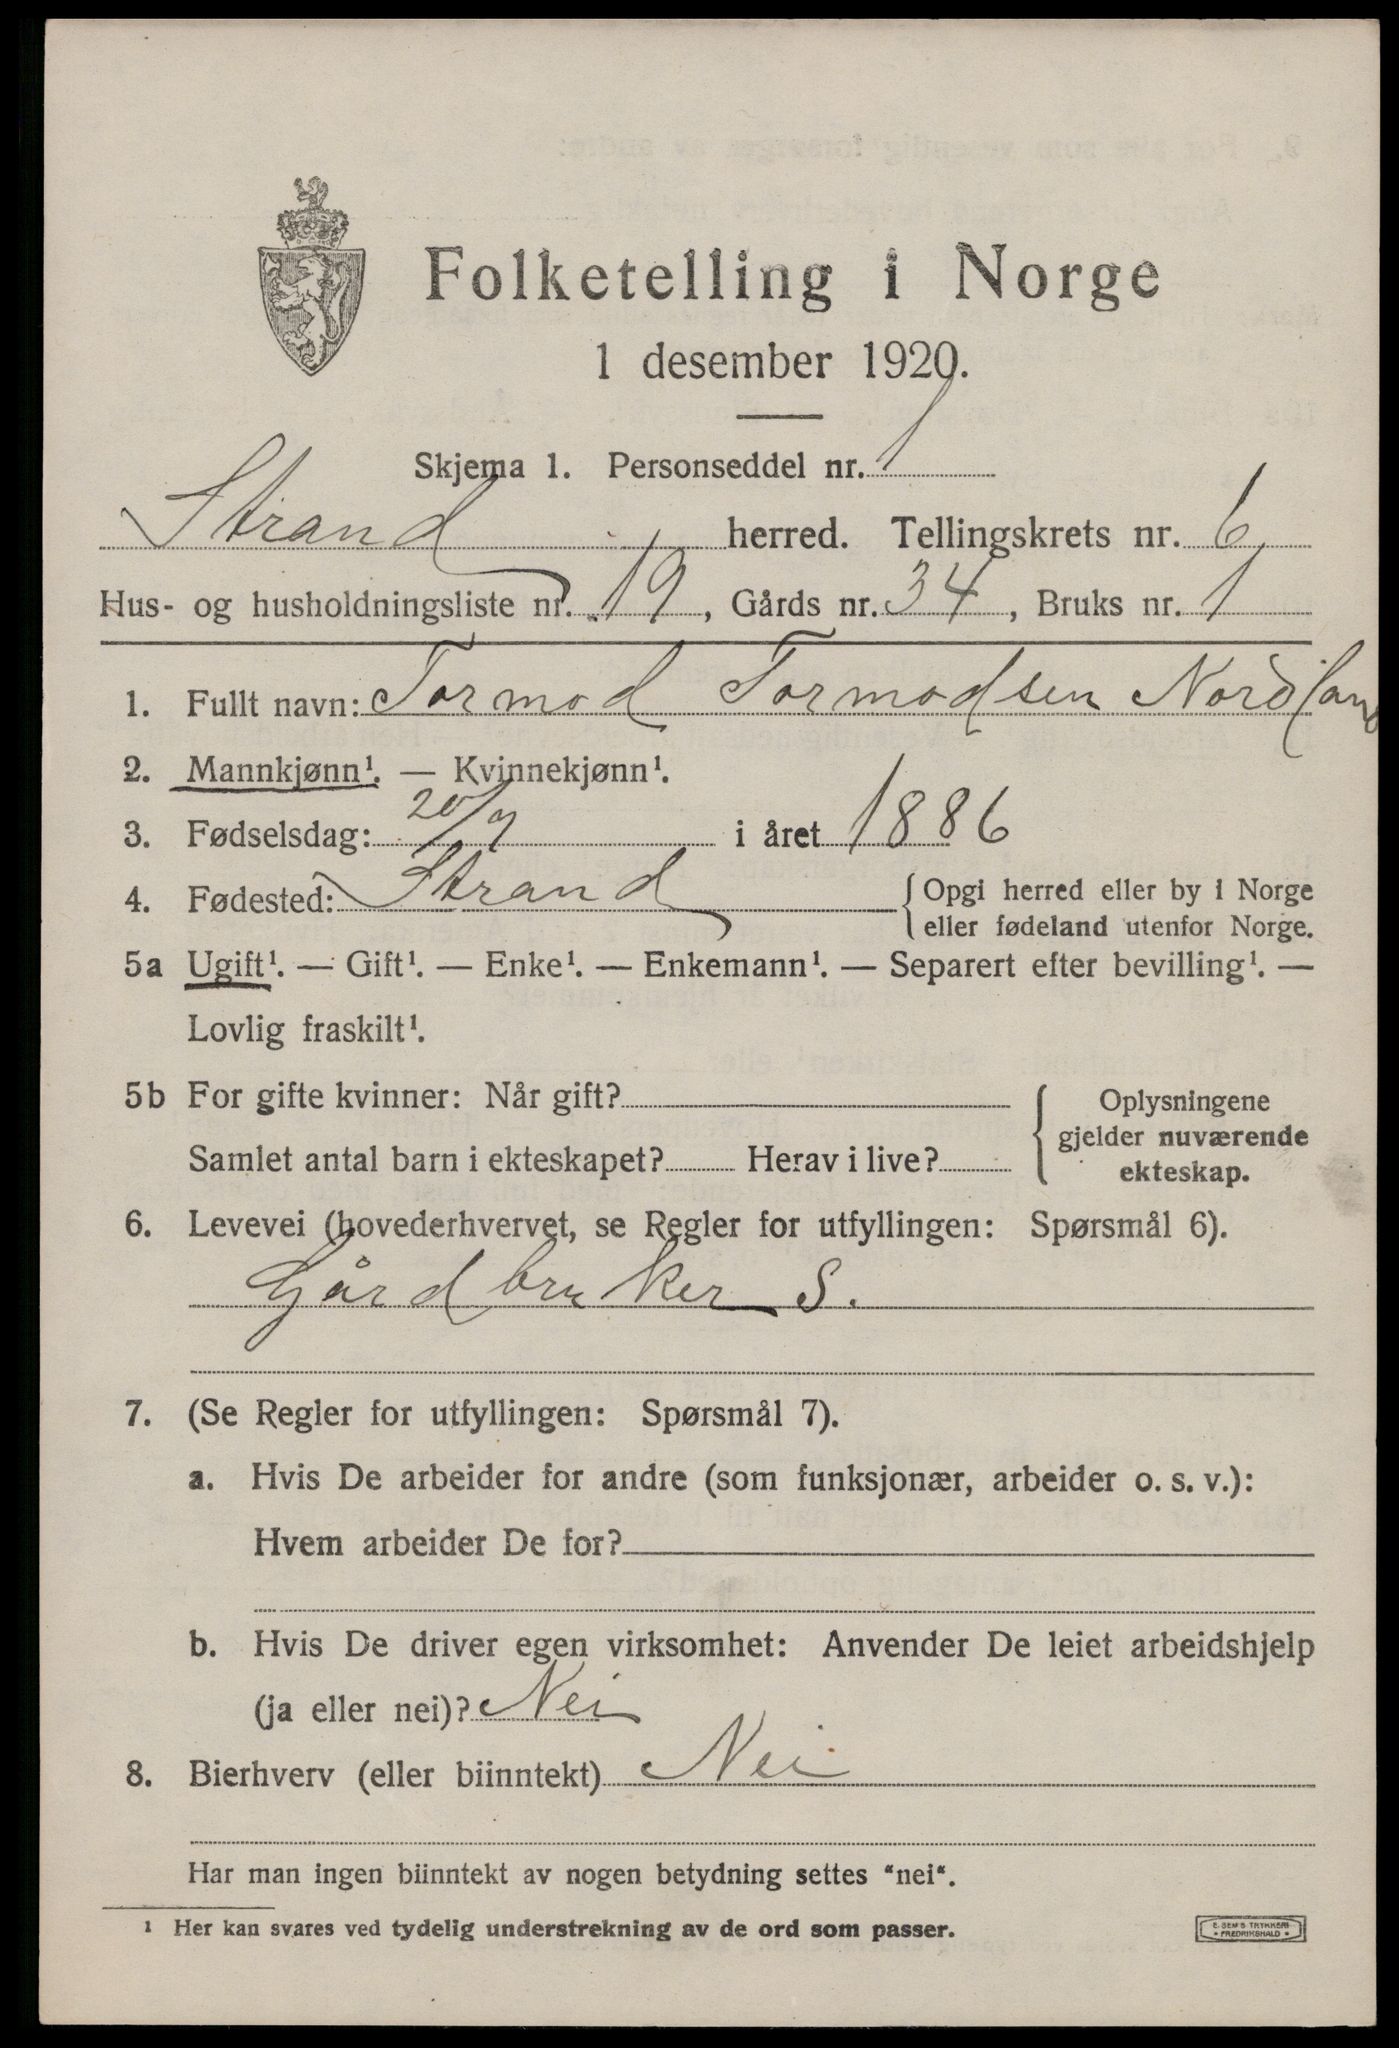 Folketelling i Norge
1 desember 1920.
Skjema 1. Personseddel nr. 1
Strand herred. Tellingskrets nr. 6
Hus- og husholdningsliste nr. 19, Gårds nr. 34, Bruks nr. 1
1. Fullt navn: Tormod Tormodsen Nordland
2. Mannkjønn¹. — Kvinnekjønn¹.
3. Fødselsdag: 20/9 i året 1886
4. Fødested: Strand { Opgi herred eller by i Norge
eller fødeland utenfor Norge.
5a Ugift¹. — Gift¹. — Enke¹. — Enkemann¹. — Separert efter bevilling¹. —
Lovlig fraskilt¹.
5b For gifte kvinner: Når gift? { Oplysningene
gjelder nuværende
Samlet antal barn i ekteskapet? Herav i live? ekteskap.
6. Levevei (hovederhvervet, se Regler for utfyllingen: Spørsmål 6).
Gårdbruker S.
7. (Se Regler for utfyllingen: Spørsmål 7).
a. Hvis De arbeider for andre (som funksjonær, arbeider o. s. v.):
Hvem arbeider De for?
b. Hvis De driver egen virksomhet: Anvender De leiet arbeidshjelp
(ja eller nei)? Nei
8. Bierhverv (eller biinntekt) Nei
Har man ingen biinntekt av nogen betydning settes "nei".
¹ Her kan svares ved tydelig understrekning av de ord som passer.
E. SEM'S TRYKKERI
• FREDRIKSHALD •